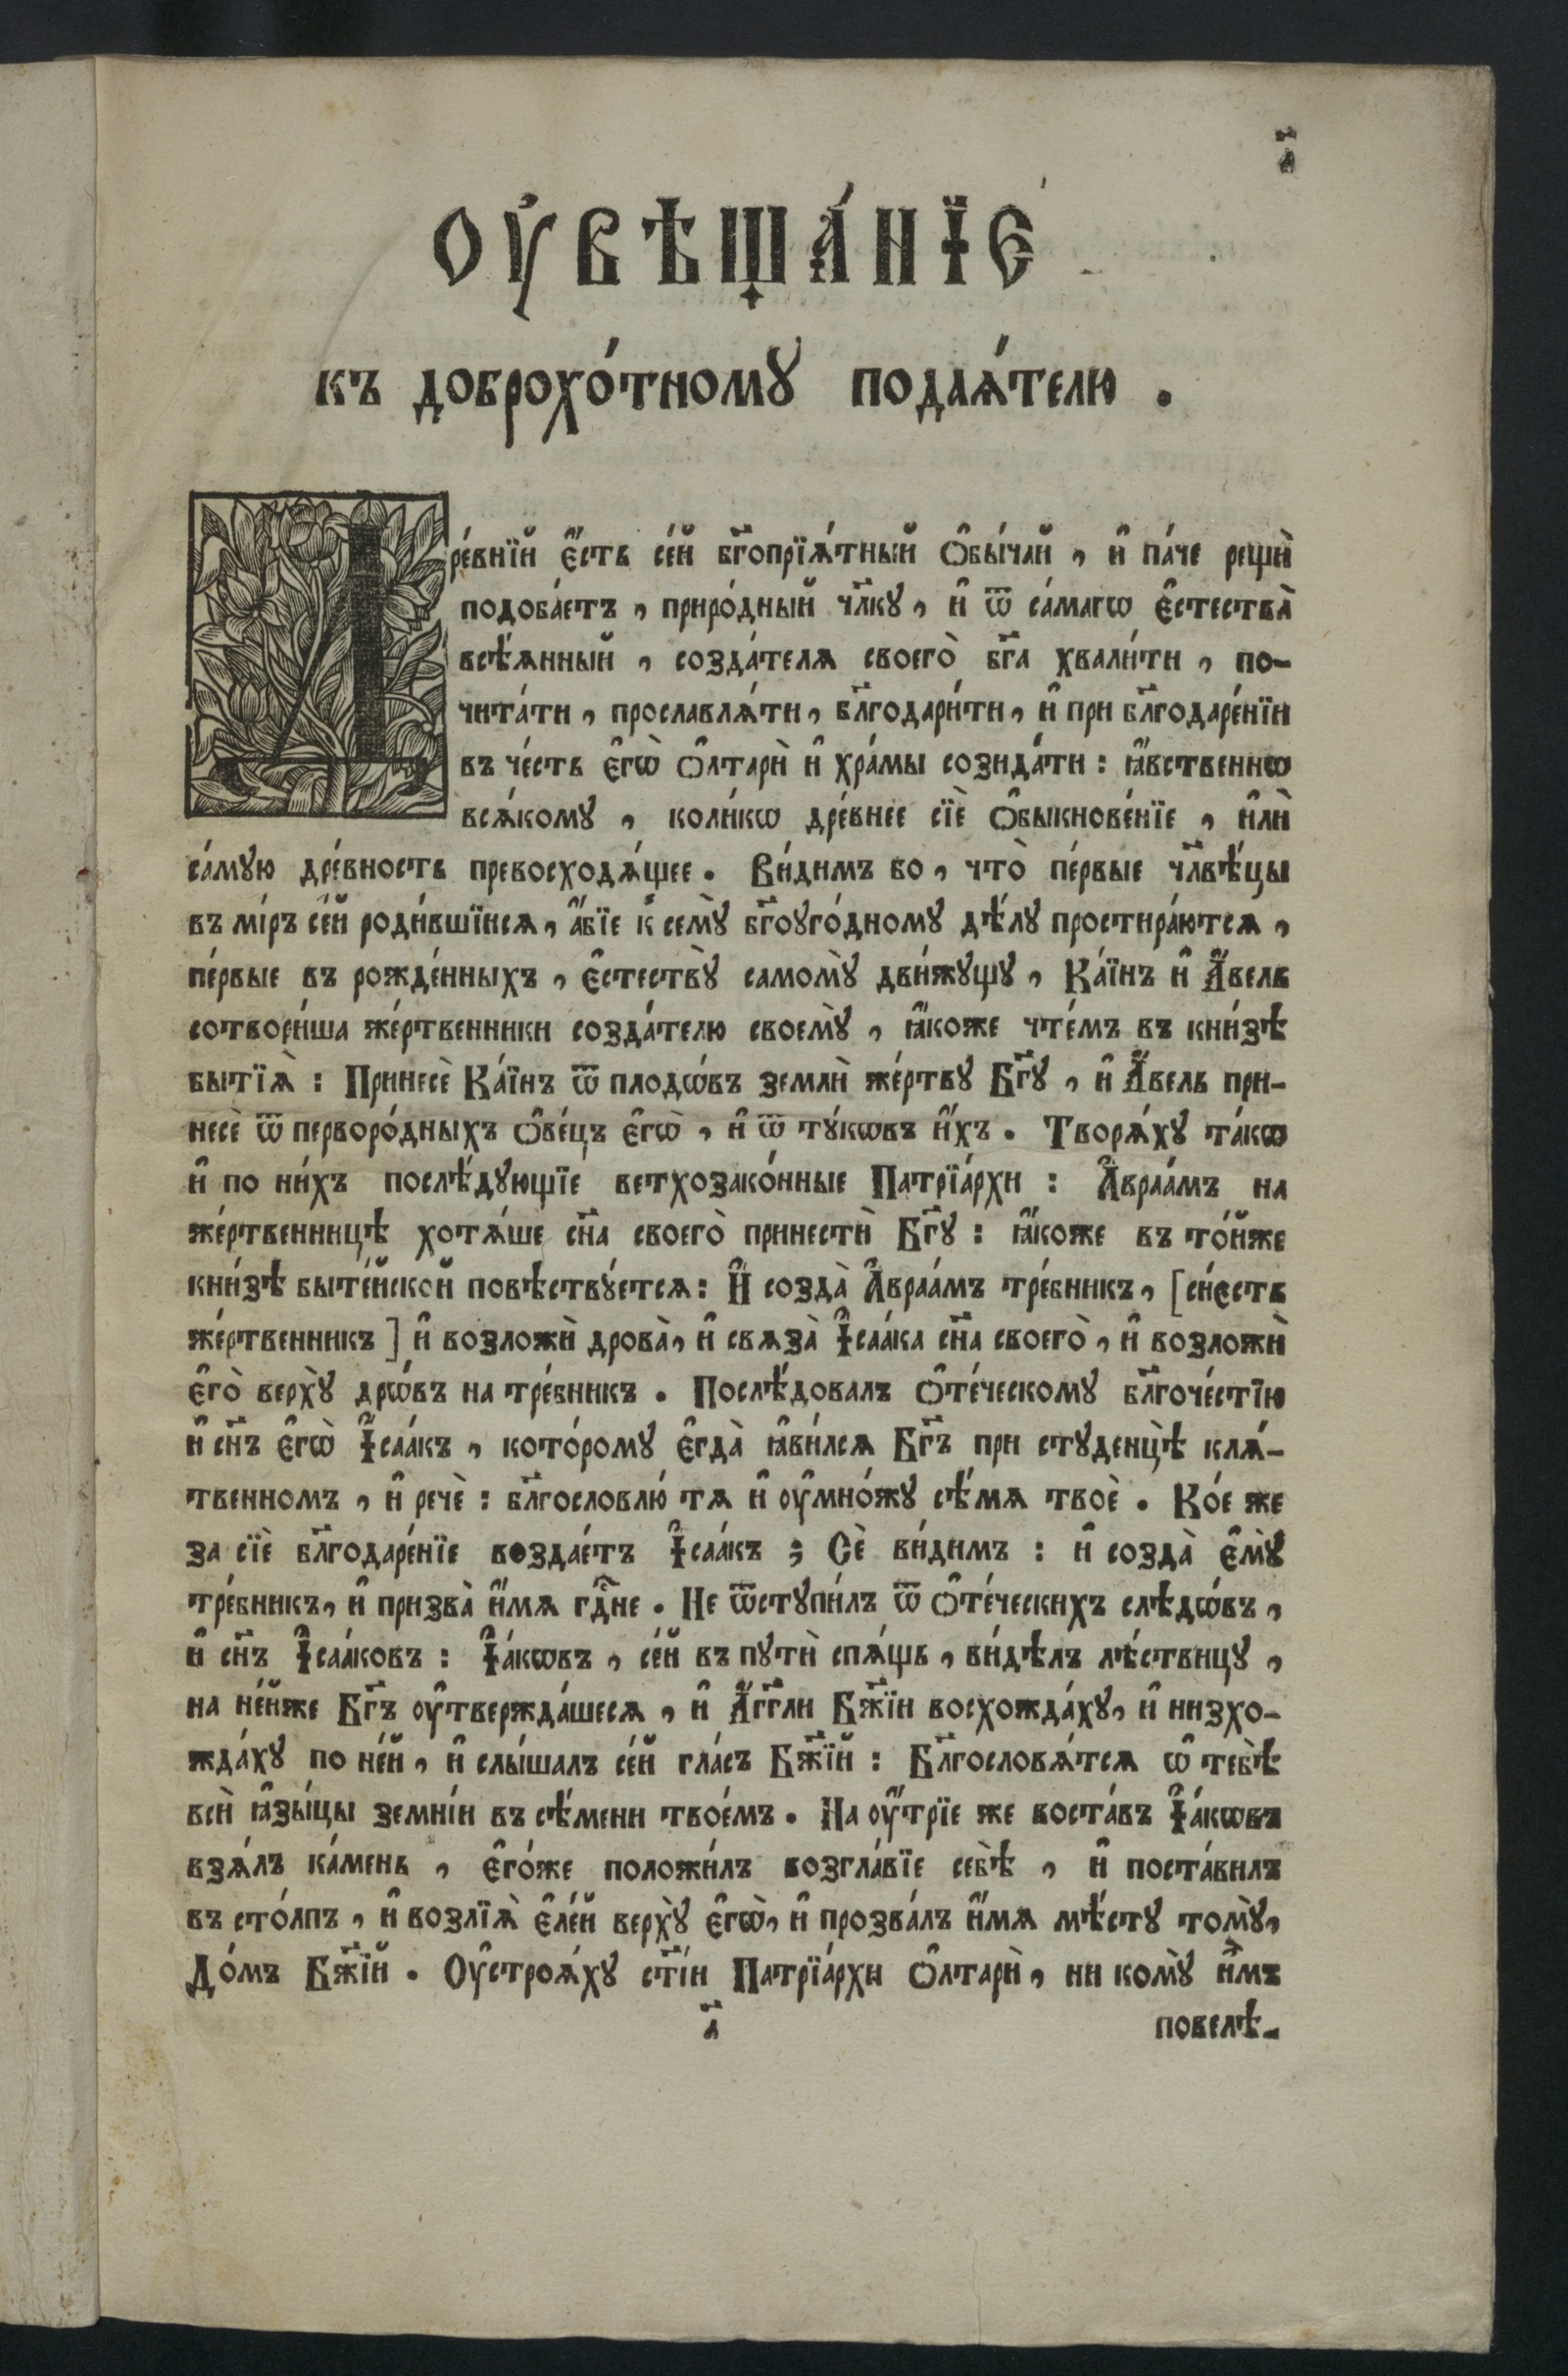 а҃
ОУ҆ВѢЩА́НЇЕ
къ доброхо́тному подаѧ́телю .
Дре́внїй є҆́сть се́й бг҃опрїѧ́тный ѻ҆бы́чай , и҆ па́че рещѝ
подоба́етъ , приро́дный чл҃ку , и҆ ѿ са́магѡ є҆стества̀
всѣ́ѧнный , созда́телѧ своего̀ бг҃а хвали́ти , по-
чита́ти , прославлѧ́ти , бл҃годари́ти , и҆ при бл҃годаре́нїи
въ че́сть є҆гѡ̀ ѻ҆лтарѝ и҆ хра́мы созида́ти : ꙗ҆́вственнѡ
всѧ́кому , коли́кѡ дре́внее сїѐ ѻ҆быкнове́нїе , и҆лѝ
са́мую дре́вность превосходѧ́щее . Ви́димъ бо , что̀ пе́рвые чл҃вѣ́цы
въ мі́ръ се́й роди́вшїисѧ , а҆́бїе к̾ сему̀ бг҃оуго́дному дѣ́лу простира́ютсѧ ,
пе́рвые въ рожде́нныхъ , є҆стеству̀ самому̀ дви́жущу , Ка́їнъ и҆ А҆́вель
сотвори́ша же́ртвенники созда́телю своему̀ , ꙗ҆́коже чте́мъ въ кни́зѣ
бытїѧ̀ : Принесѐ Ка́їнъ ѿ плодѡ́въ землѝ же́ртву Бг҃у , и҆ А҆́вель при-
несѐ ѿ перворо́дныхъ ѻ҆ве́цъ є҆гѡ̀ , и҆ ѿ ту́кѡвъ и҆́хъ . Творѧ́ху та́кѡ
и҆ по ни́хъ послѣ́дующїе ветхозако́нные Патрїа́рхи : А҆враа́мъ на
же́ртвенницѣ хотѧ́ше сн҃а своего̀ принестѝ Бг҃у : ꙗ҆́коже въ то́йже
кни́зѣ быте́йской повѣству́етсѧ : И҆ созда̀ А҆враа́мъ тре́бникъ , [ си́есть
же́ртвенникъ ] и҆ возложѝ дрова̀ , и҆ свѧза̀ І҆саа́ка сн҃а своего̀ , и҆ возложѝ
є҆го̀ верху̀ дрѡ́въ на тре́бникъ . Послѣ́довалъ ѻ҆те́ческому бл҃гоче́стїю
и҆ сн҃ъ є҆гѡ̀ І҆саа́къ , кото́рому є҆гда̀ ꙗ҆ви́лсѧ Бг҃ъ при студенцѣ̀ клѧ́-
твенномъ , и҆ речѐ : бл҃гословлю́ тѧ и҆ оу҆мно́жу сѣ́мѧ твоѐ . Ко́е же
за сїѐ бл҃годаре́нїе воздае́тъ І҆саа́къ ; Сѐ ви́димъ : и҆ созда̀ є҆му̀
тре́бникъ , и҆ призва̀ и҆́мѧ гд҇не . Не ѿступи́лъ ѿ ѻ҆те́ческихъ слѣдѡ́въ ,
и҆ сн҃ъ І҆саа́ковъ : І҆а́кѡвъ , се́й въ путѝ спѧ́щь , ви́дѣлъ лѣ́ствицу ,
на не́йже Бг҃ъ оу҆твержда́шесѧ , и҆ А҆́гг҃ли Бж҃їи восхожда́ху , и҆ низхо-
жда́ху по не́й , и҆ слы́шалъ се́й гла́съ Бж҃їй : Бл҃гословѧ́тсѧ ѡ҆ тебѣ̀
всѝ ꙗ҆зы́цы земні́и въ сѣ́мени твое́мъ . На оу҆́трїе же воста́въ І҆а́кѡвъ
взѧ́лъ ка́мень , є҆го́же положи́лъ возгла́вїе себѣ̀ , и҆ поста́вилъ
въ сто́лпъ , и҆ возлїѧ̀ є҆ле́й верху̀ є҆гѡ̀ , и҆ прозва́лъ и҆́мѧ мѣ́сту тому̀ ,
До́мъ Бж҃їй . Оу҆строѧ́ху ст҃і́и Патрїа́рхи ѻ҆лтарѝ , ни кому̀ и҆̀мъ
а҃ повелѣ-